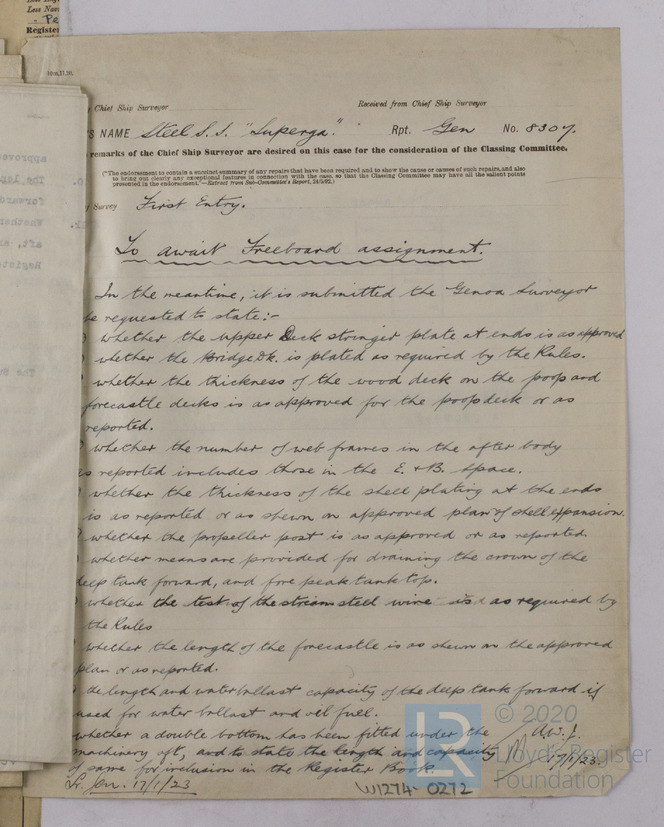 Less Nav
Pe
Register
10m,11,19.
Chief Ship Surveyor Received from Chief Ship Surveyor
'S NAME Steel S.S. "Superga". Rpt. Gen No. 8307.
remarks of the Chief Ship Surveyor are desired on this case for the consideration of the Classing Committee.
("The endorsement to contain a succinct summary of any repairs that have been required and to show the cause or causes of such repairs, and also
to bring out clearly any exceptional features in connection with the case, so that the Classing Committee may have all the salient points
presented in the endorsement."—Extract from Sub-Committee's Report, 24/5/92.)
Survey First Entry.
To await Freeboard assignment.
In the meantime, it is submitted the Genoa Surveyor
be requested to state:-
) whether the upper Deck stringer plate at ends is as approved
) whether the Bridge Dk. is plated as required by the Rules.
) whether the thickness of the wood deck on the poop and
forecastle decks is as approved for the poop deck or as
reported.
) whether the number of web frames in the after body
as reported includes those in the E. & B. space.
) whether the thickness of the shell plating at the ends
is as reported or as shewn on approved plan of shell expansion.
) whether the propeller post is as approved or as reported.
) whether means are provided for draining the crown of the
deep tank forward, and fore peak tank top.
) whether the test of the stream steel wire is as required by
the Rules
) whether the length of the forecastle is as shewn on the approved
plan or as reported.
) the length and water ballast capacity of the deep tank forward if
used for water ballast and oil fuel.
whether a double bottom has been fitted under the
machinery aft, and to state the length and capacity
of same for inclusion in the Register Book.
A.W.J.
17/1/23.
Lr. Gen. 17/1/23
W1274-0272
© 2020
Lloyd's Register
Foundation
LR